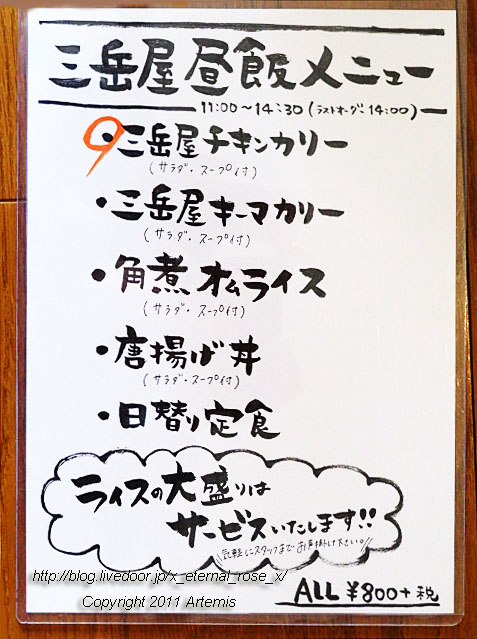 三岳屋昼飯メニュー
11:00〜14:30(ラストオーダー 14:00)
・三岳屋チキンカリー
(サラダ・スープ付)
・三岳屋キーマカリー
(サラダ・スープ付)
・角煮オムライス
(サラダ・スープ付)
・唐揚げ丼
(サラダ・スープ付)
・日替り定食
ライスの大盛りは
サービスいたします!!
気軽にスタッフまでお声掛け下さい。
http://blog.livedoor.jp/x_eternal_rose_x/
Copyright 2011 Artemis
ALL ¥800+税